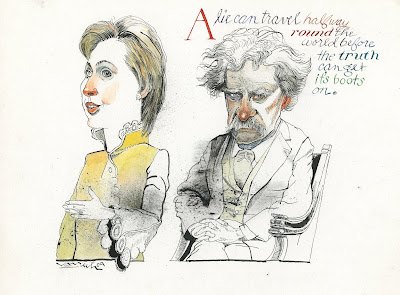 A lie can travel halfway
round the
world before
the truth
can get
its boots
on.